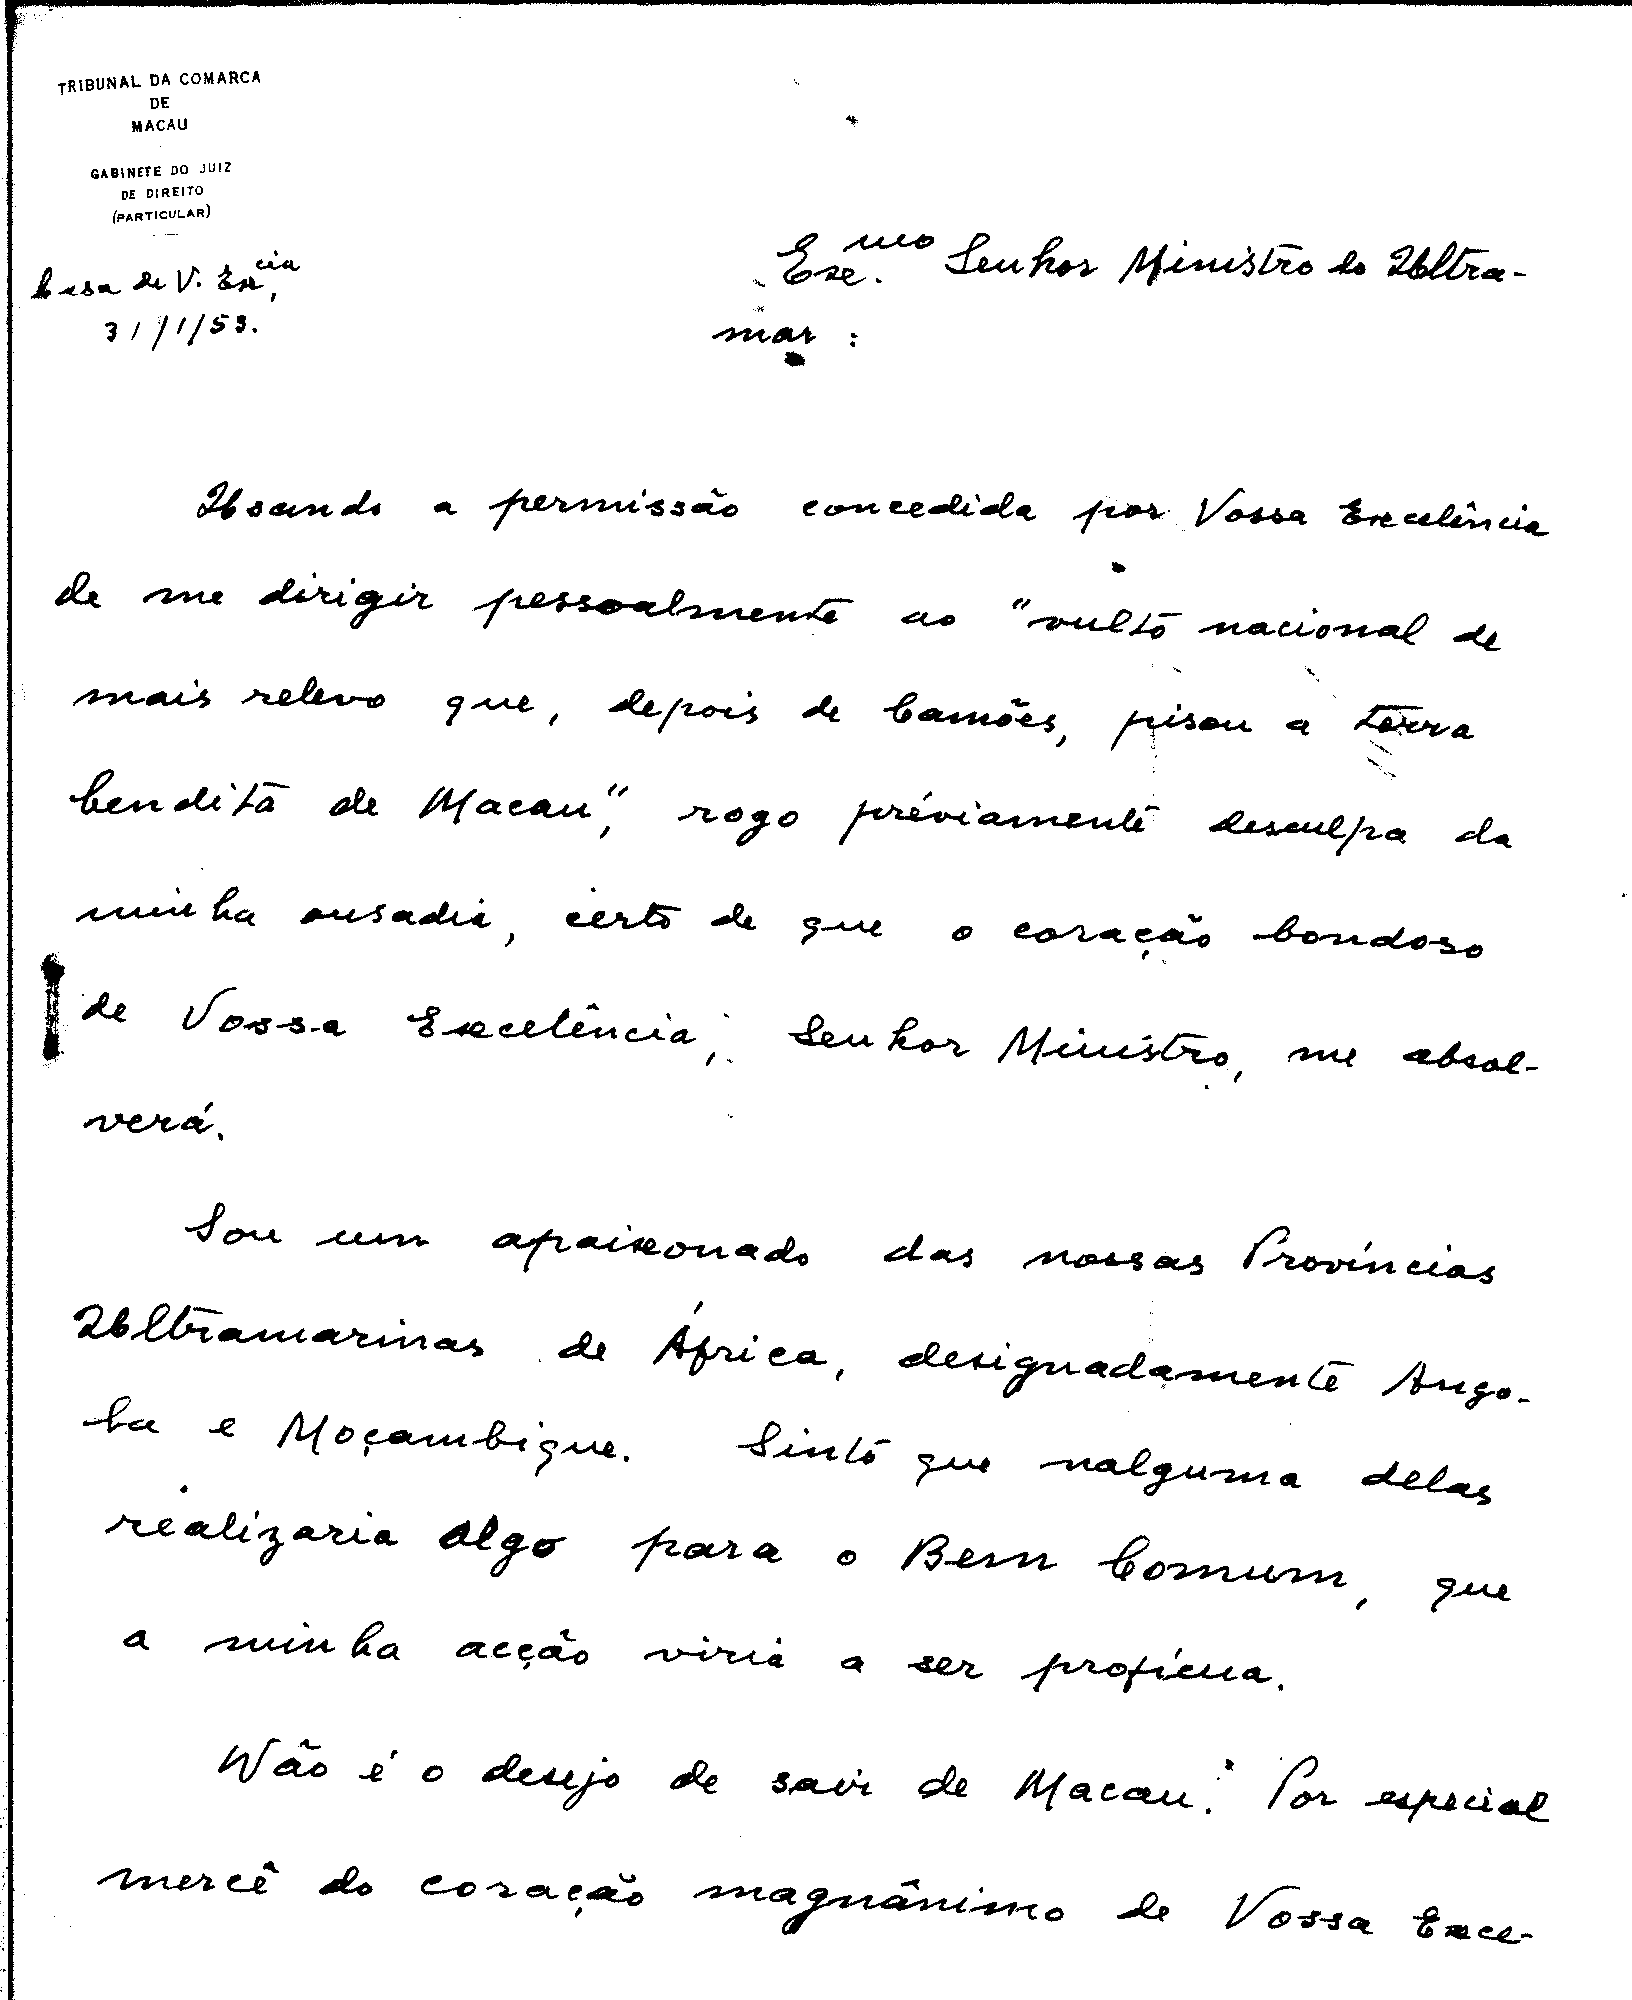 TRIBUNAL DA COMARCA
DE
MACAU
GABINETE DO JUIZ
DE DIREITO
(PARTICULAR)
Casa de V. Ex.cia,
31/1/53.
Exc.mo Senhor Ministro do Ultra-
mar :
Usando a permissão concedida por Vossa Excelência
de me dirigir pessoalmente ao "vulto nacional de
mais relevo que, depois de Camões, pisou a terra
bendita de Macau", rogo préviamente desculpa da
minha ousadia, certo de que o coração bondoso
de Vossa Excelência, Senhor Ministro, me absol-
verá.
Sou um apaixonado das nossas Províncias
Ultramarinas de África, designadamente Ango-
la e Moçambique. Sinto que nalguma delas
realizaria algo para o Bem Comum, que
a minha acção viria a ser profícua.
Não é o desejo de sair de Macau. Por especial
mercê do coração magnânimo de Vossa Exce-